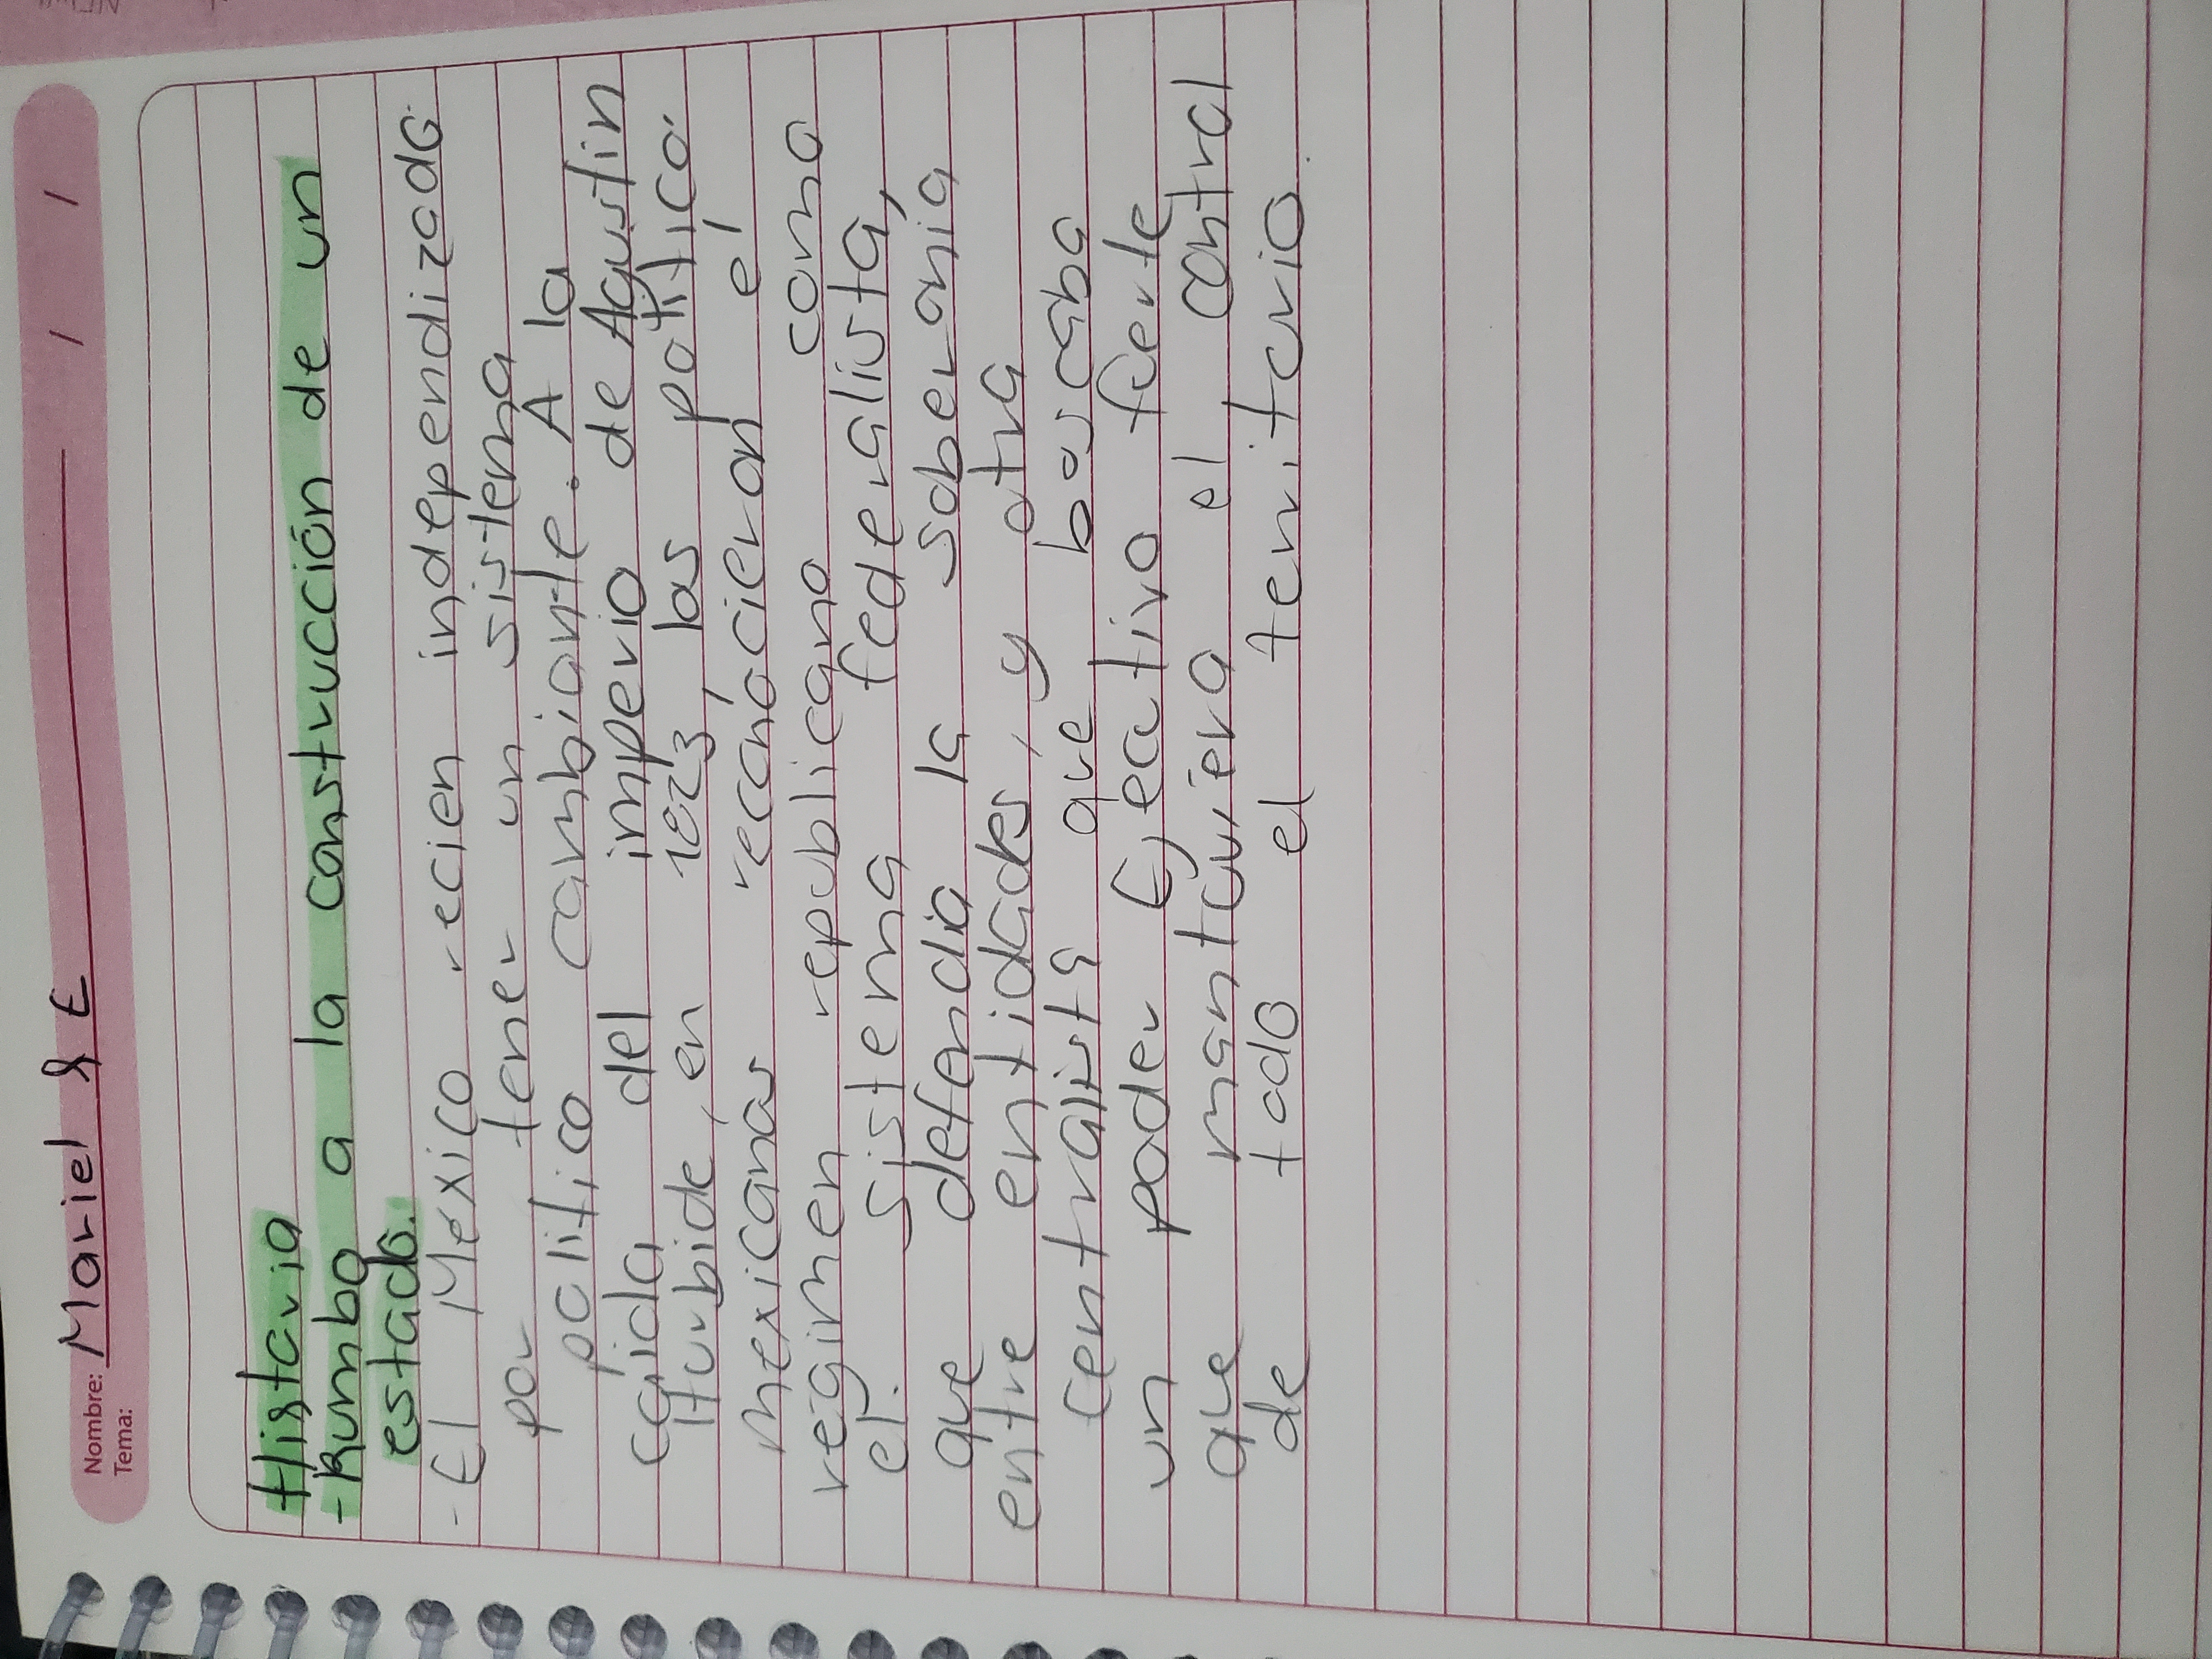 Nombre: Mariel & E / /
Tema:
Historia
-Rumbo a la construcción de un
estado.
- El Mexico recien independizado
por tener un sistema
politico cambiante. A la
caida del imperio de Agustin
Iturbide, en 1823, los politicos
mexicanos reconocieron el
regimen republicano como
el. sistema federalista,
que defendia la soberania
entre entidades, y otra
centralista que buscaba
un poder Ejecutivo fuerte
que mantuviera el control
de todo el territorio.